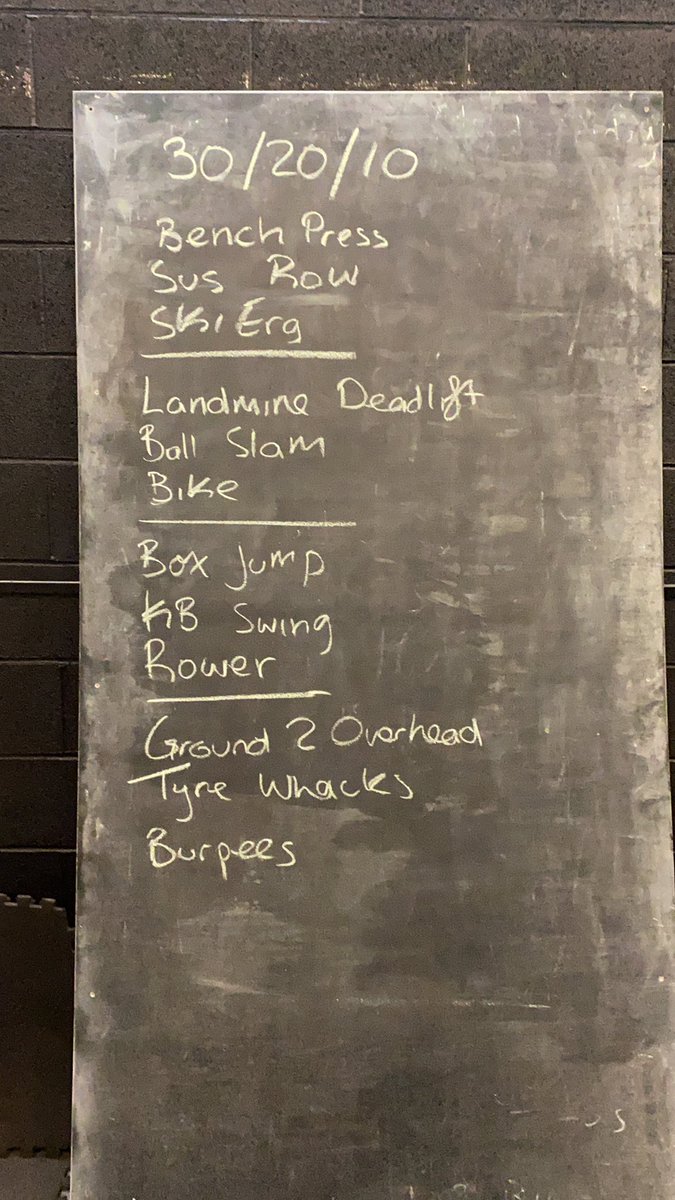 30/20/10
Bench Press
Sus Row
Ski Erg
Landmine Deadlift
Ball Slam
Bike
Box Jump
KB Swing
Rower
Ground 2 Overhead
Tyre Whacks
Burpees